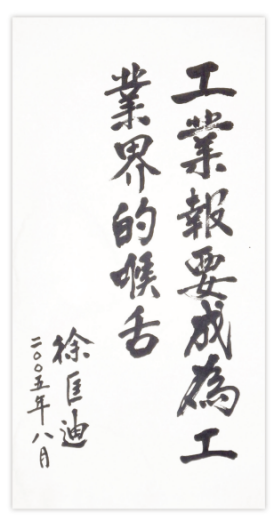 工業報要成為工
業界的喉舌
徐匡迪
二〇〇五年八月